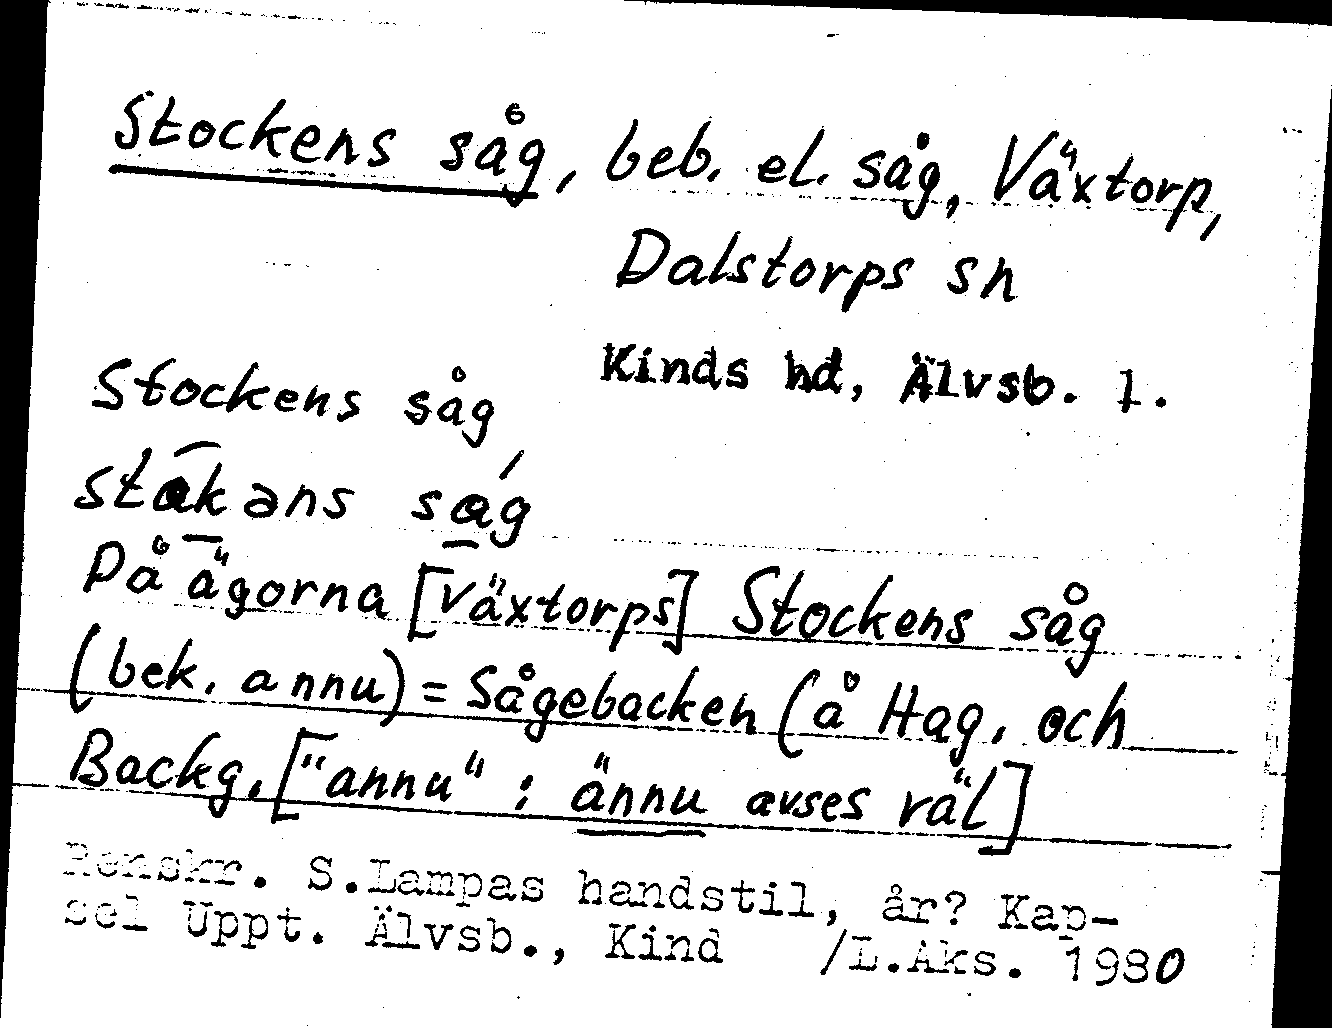 Stockens såg, beb. el. såg, Växtorp,
Dalstorps sn
Kinds hd, Älvsb. l.
Stockens såg
ståkəns såg
På ägorna [Växtorps] Stockens såg
(bek. annu) = Sågebacken (å Hag. och
Backg. ["annu" : ännu avses väl]
Renskr. S.Lampas handstil, år? Kap-
sel Uppt. Älvsb., Kind /L.Aks. 1980